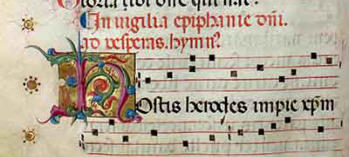 Gloria tibi dñe qui nat᷒
In vigilia epiphanie dñi.
ad vesperas. hymn᷒
Hostis herodes impie xp̄m